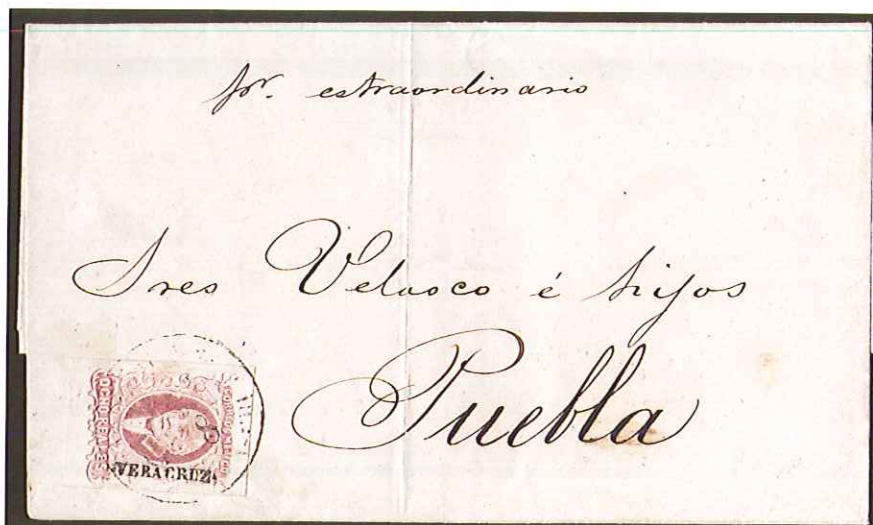 pr. estraordinario
Sres Velasco é hijos
Puebla
OCHO REALES
CORREOS MEJICO
VERACRUZ